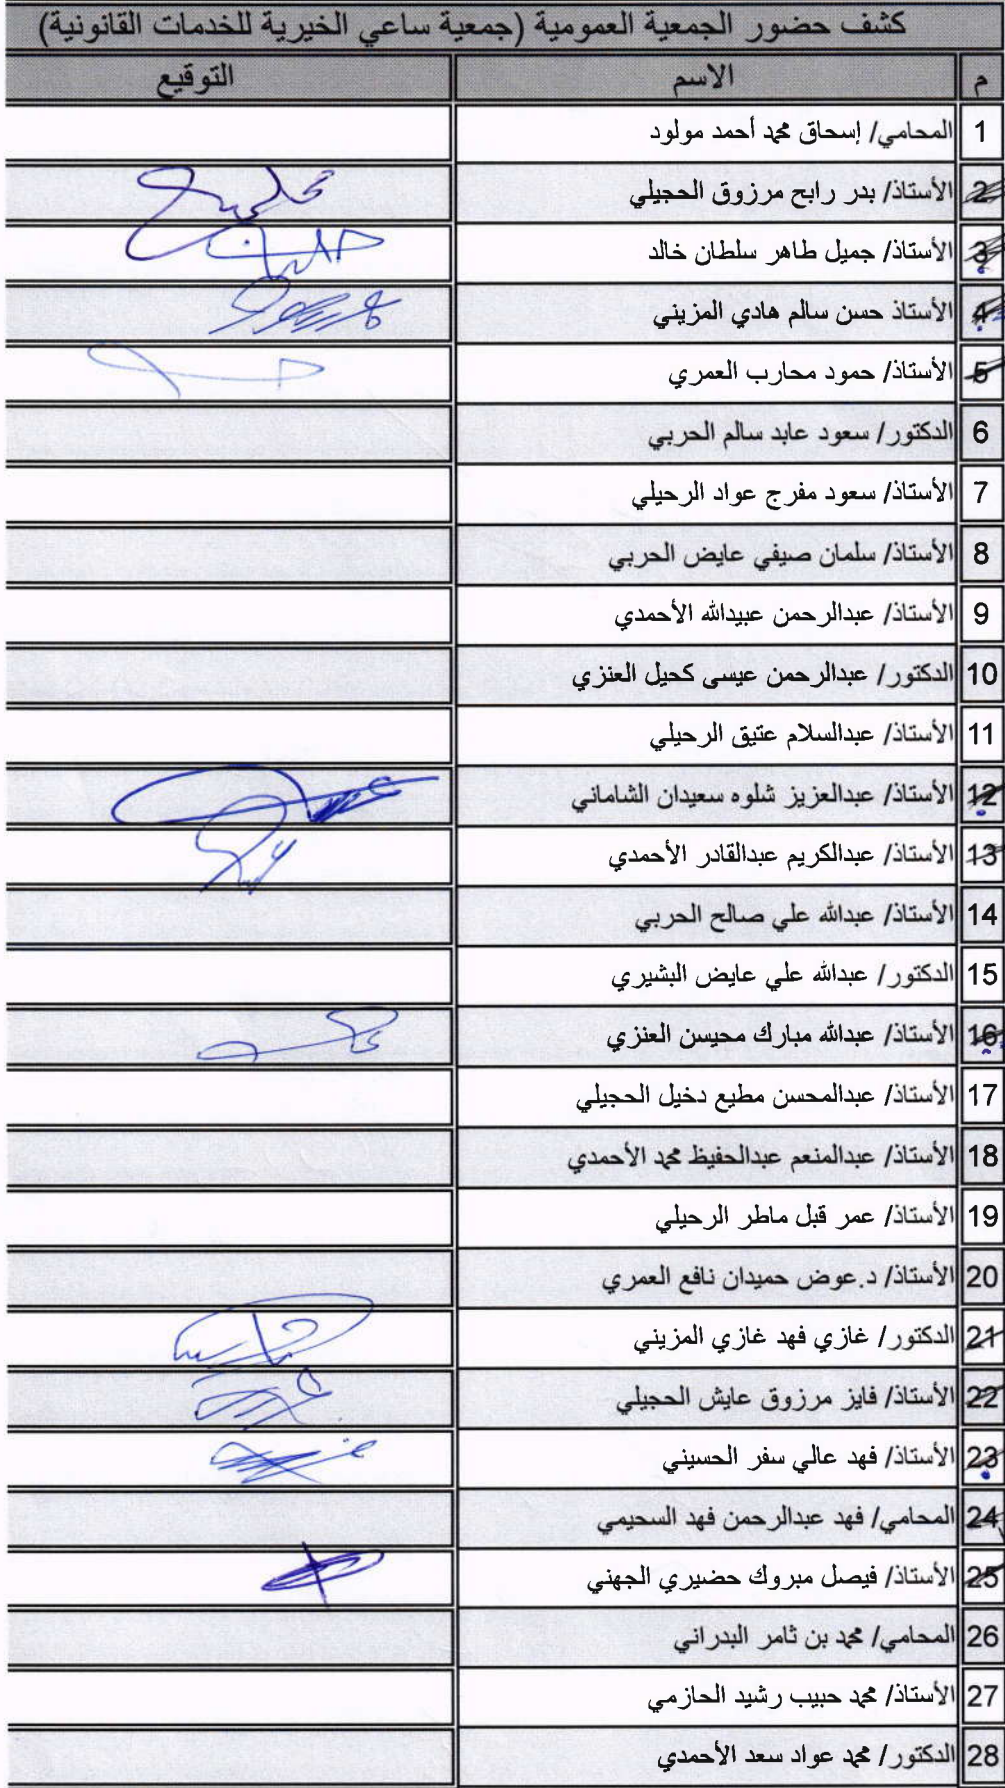 كشف حضور الجمعية العمومية (جمعية ساعي الخيرية للخدمات القانونية)
م الاسم التوقيع
1 المحامي/ إسحاق محمد أحمد مولود
2 الأستاذ/ بدر رابح مرزوق الحجيلي
3 الأستاذ/ جميل طاهر سلطان خالد
4 الأستاذ حسن سالم هادي المزيني
5 الأستاذ/ حمود محارب العمري
6 الدكتور/ سعود عابد سالم الحربي
7 الأستاذ/ سعود مفرج عواد الرحيلي
8 الأستاذ/ سلمان صيفي عايض الحربي
9 الأستاذ/ عبدالرحمن عبيدالله الأحمدي
10 الدكتور/ عبدالرحمن عيسى كحيل العنزي
11 الأستاذ/ عبدالسلام عتيق الرحيلي
12 الأستاذ/ عبدالعزيز شلوه سعيدان الشاماني
13 الأستاذ/ عبدالكريم عبدالقادر الأحمدي
14 الأستاذ/ عبدالله علي صالح الحربي
15 الدكتور/ عبدالله علي عايض البشيري
16 الأستاذ/ عبدالله مبارك محيسن العنزي
17 الأستاذ/ عبدالمحسن مطيع دخيل الحجيلي
18 الأستاذ/ عبدالمنعم عبدالحفيظ محمد الأحمدي
19 الأستاذ/ عمر قبل ماطر الرحيلي
20 الأستاذ/ د.عوض حميدان نافع العمري
21 الدكتور/ غازي فهد غازي المزيني
22 الأستاذ/ فايز مرزوق عايش الحجيلي
23 الأستاذ/ فهد عالي سفر الحسيني
24 المحامي/ فهد عبدالرحمن فهد السحيمي
25 الأستاذ/ فيصل مبروك حضيري الجهني
26 المحامي/ محمد بن ثامر البدراني
27 الأستاذ/ محمد حبيب رشيد الحازمي
28 الدكتور/ محمد عواد سعد الأحمدي